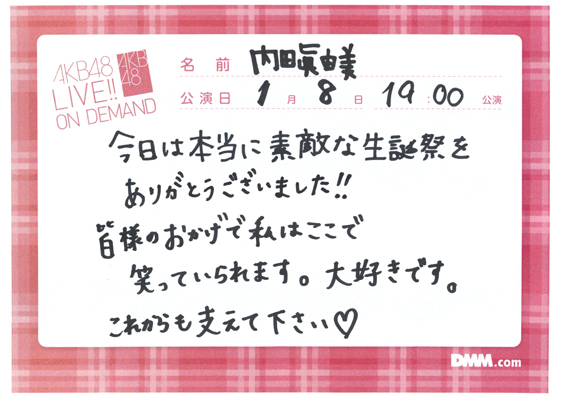 AKB48
LIVE!!
ON DEMAND
AKB
48
名前 内田眞由美
公演日 1月8日 19:00 公演
今日は本当に素敵な生誕祭を
ありがとうございました!!
皆様のおかげで私はここで
笑っていられます。大好きです。
これからも支えて下さい♡
DMM.com